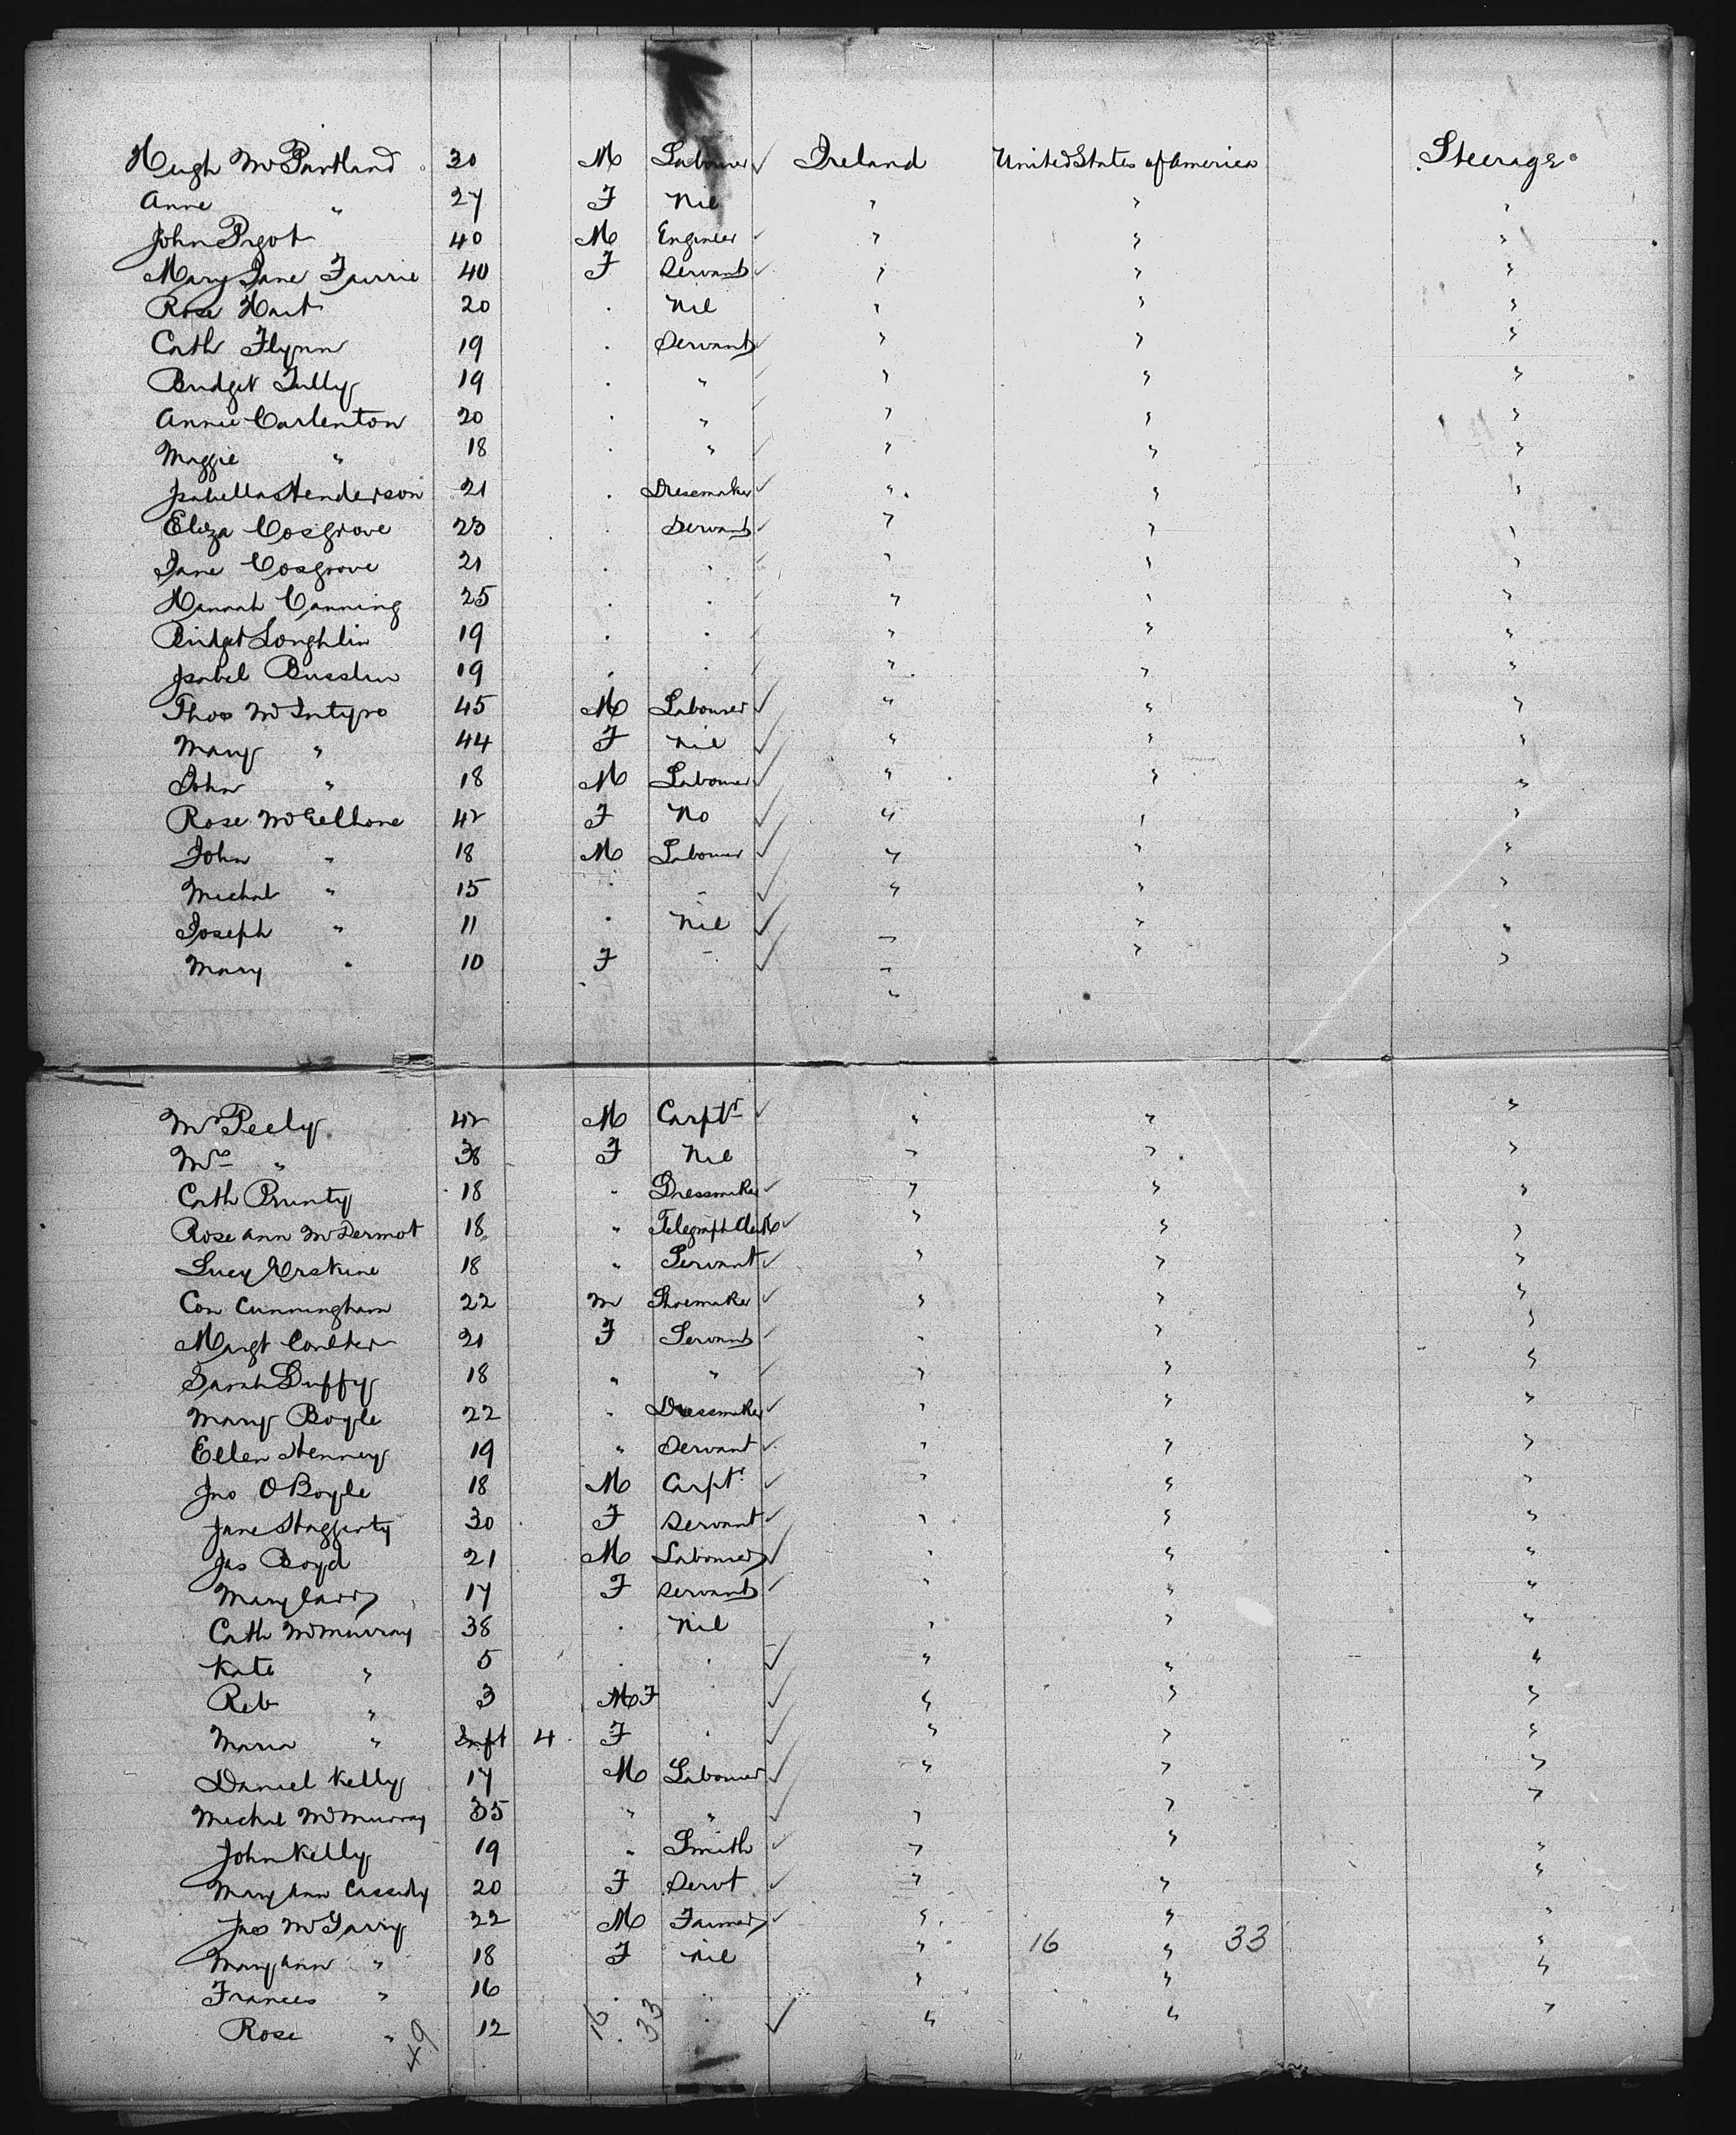 Hugh McPartland 30 M Labourer ✓ Ireland United States of America Steerage
Anne " 27 F Nil " " "
John Pigot 40 M Engineer ✓ " " "
Mary Jane 40 F Servant ✓ " " "
Rose Hart 20 . Nil " " "
Cath Flynn 19 . Servant ✓ " " "
Bridget Tully 19 . " ✓ " " "
Annie Carlenton 20 . " ✓ " " "
Maggie " 18 . " ✓ " " "
Isabella Henderson 21 . Dressmaker ✓ " " "
Eliza Cosgrove 23 . Servant ✓ " " "
Jane Cosgrove 21 . " ✓ " " "
Hannah Canning 25 . . ✓ " " "
Bridget Loughlin 19 . . ✓ " " "
Isabel 19 . . ✓ " " "
Thos McIntyre 45 M Labourer ✓ " " "
Mary " 44 F Nil ✓ " " "
John " 18 M Labourer ✓ " " "
Rose McElhone 42 F No ✓ " " "
John " 18 M Labourer ✓ " " "
Michal " 15 . " ✓ " " "
Joseph " 11 . Nil ✓ " " "
Mary " 10 F " ✓ " " "
Mr Peely 42 M Carptr ✓ " " "
Mrs " 38 F Nil " " "
Cath Prunty 18 " Dressmaker ✓ " " "
Rose Ann McDermot 18 " Telegraph Clerk ✓ " " "
Lucy Erskine 18 " Servant ✓ " " "
Con Cunningham 22 M Shoemaker ✓ " " "
Margt Coulter 21 F Servant ✓ " " "
Sarah Duffy 18 " " ✓ " " "
Mary Boyle 22 " Dressmaker ✓ " " "
Ellen Henney 19 " Servant ✓ " " "
Jno O Boyle 18 M Carptr ✓ " " "
Jane Haggerty 30 F Servant ✓ " " "
Jas Boyd 21 M Labourer ✓ " " "
Mary Carr 17 F Servant ✓ " " "
Cath McMurray 38 . Nil " " "
Kate " 5 . . ✓ " " "
Reb " 3 M F ✓ " " "
Maria " Inft 4 F . ✓ " " "
Daniel Kelly 17 M Labourer ✓ " " "
Michal McMurray 35 " " ✓ " " "
John Kelly 19 " Smith ✓ " " "
Mary Ann Cassidy 20 F Servt ✓ " " "
Jas McGarry 22 M Farmer ✓ " " "
Mary Ann " 18 F Nil " 16 " 33 "
Frances " 16 . . " " "
Rose " 12 . . ✓ " " "
49 16 33